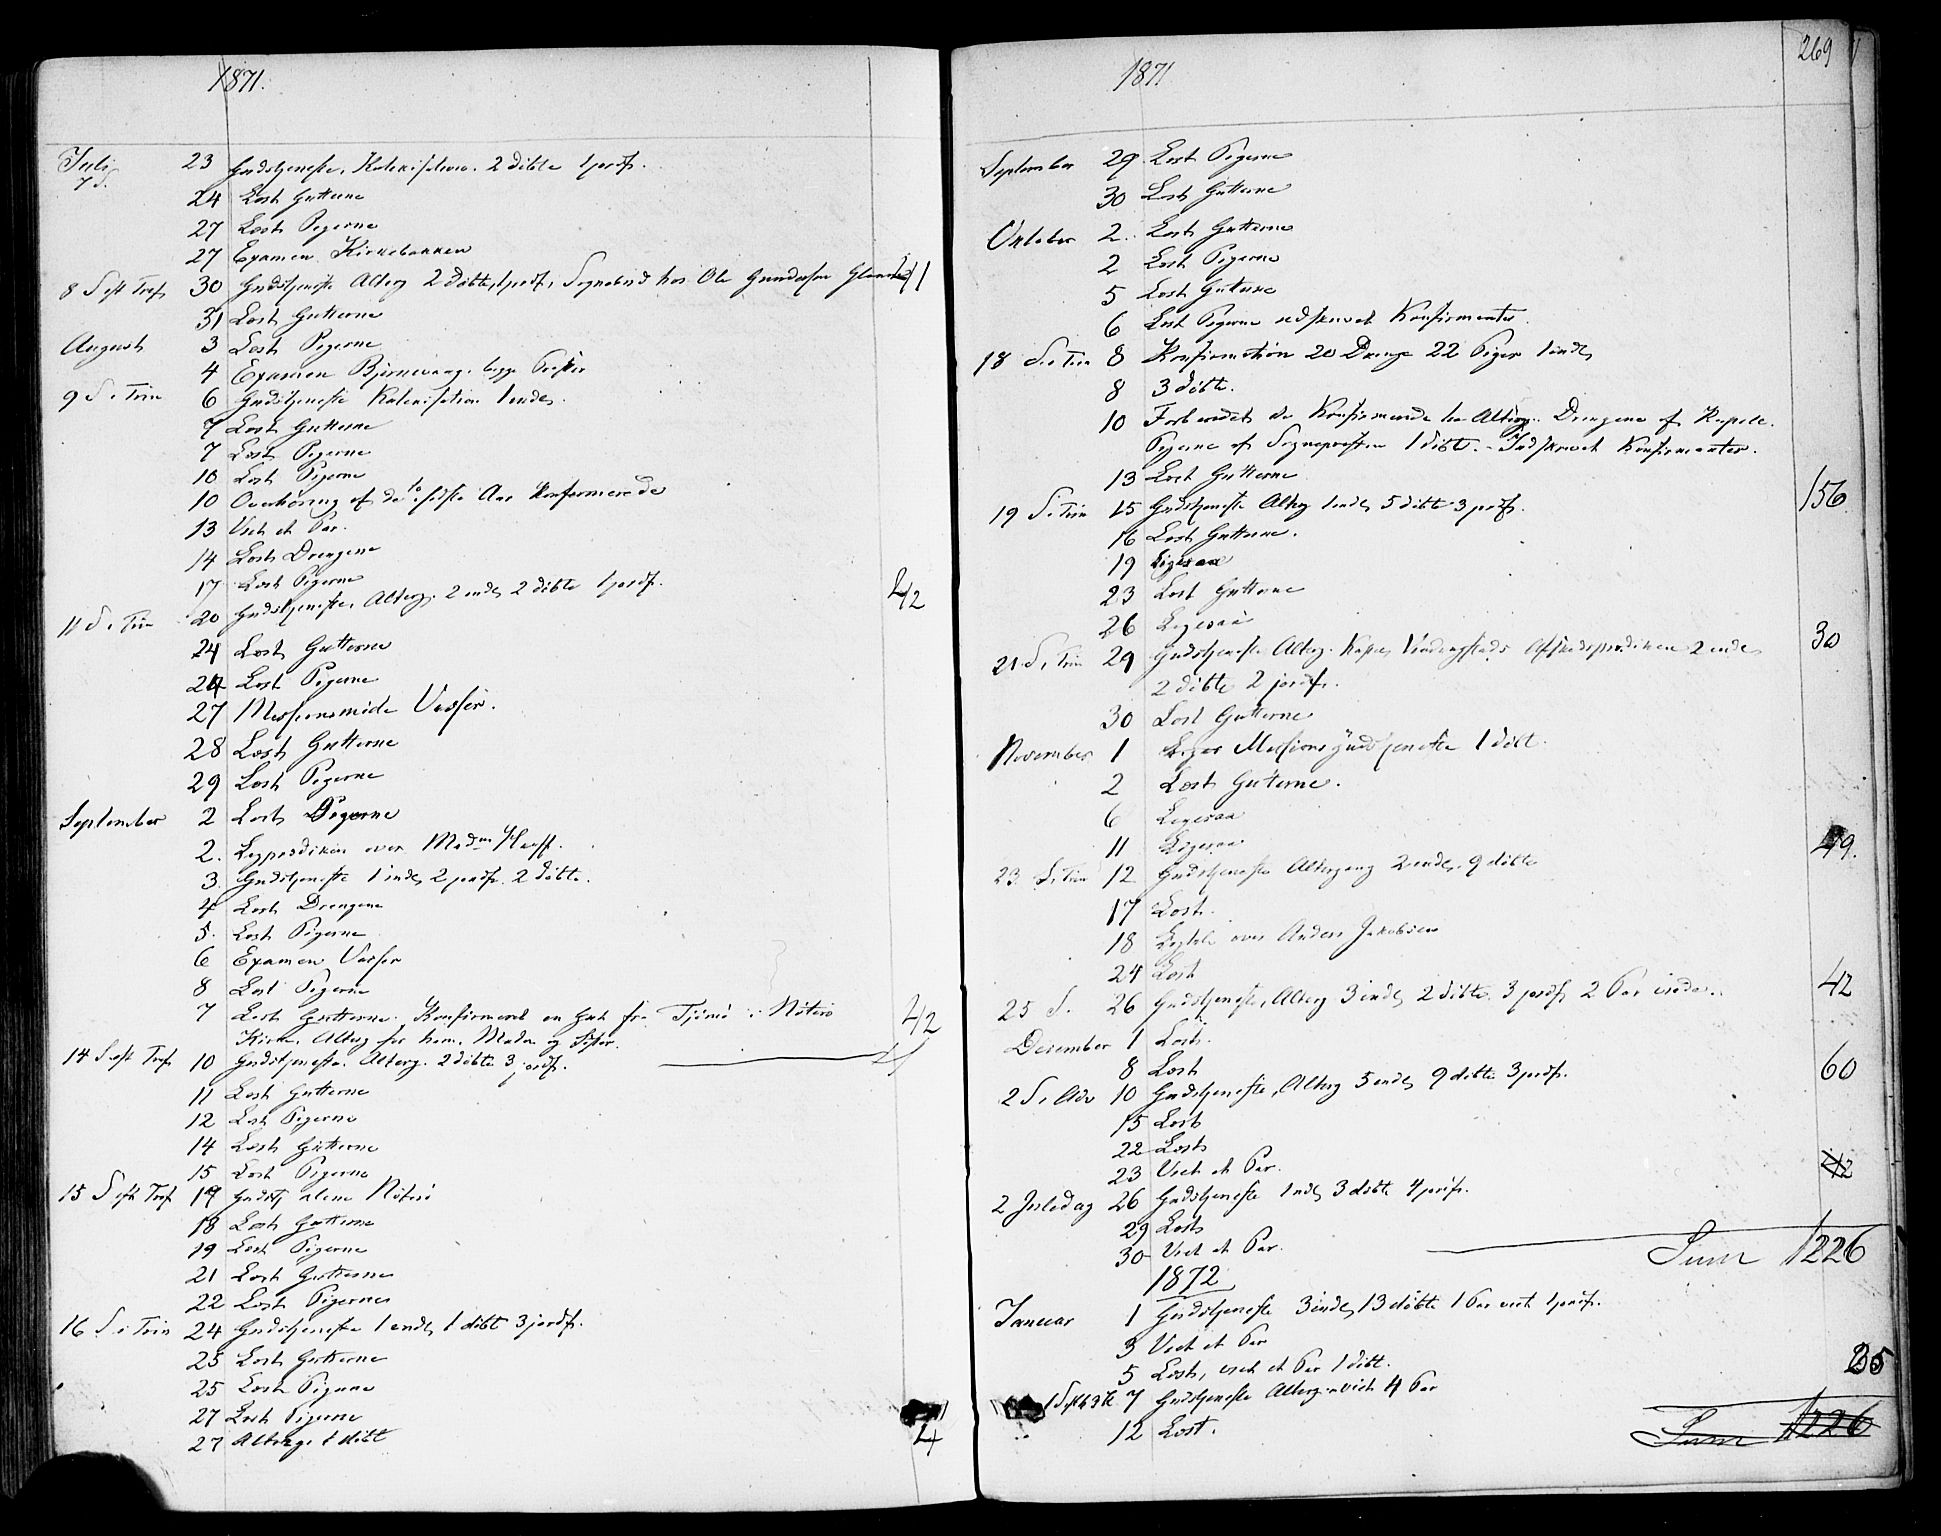 1871.
Juli 23 Gudstjeneste, Katekisation. 2 döbte 1 jordf.
7 S.
24 Læst Gutterne
27 Læst Pigerne
27 Examen Kirkebakken
8 S eft Tref 30 Gudstjeneste Alterg 2 döbte, 1 jordf, Sognebud hos Ole Gundersen
31 Læst Gutterne
August 3 Læst Pigerne
4 Examen Björnevaag. begge Prester
9 S i Trin 6 Gudstjeneste Katekisation 1 indl.
7 Læst Gutterne
7 Læst Pigerne
10 Læst Pigerne
10 Overhöring af de to sidste Aar Konfirmerede
13 Viet et Par.
14 Læst Drengene
17 Læst Pigerne
11 S. i Trin 20 Gudstjeneste, Alterg. 2 indl, 2 döbte 1 jordf. 42
24 Læst Gutterne
24 Læst Pigerne
27 Missionsmöde Vasser.
28 Læst Gutterne
29 Læst Pigerne
September 2 Læst Pigerne
2. Ligprædiken over Madm
3 Gudstjeneste 1 indl, 2 jordf. 2 döbte.
4 Læst Drengene
5. Læst Pigerne
6 Examen Vasser
8 Læst Pigerne
7 Læst Gutterne. Konfirmeret en Gut fra Tjömö i Nöterö 42
Kirke. Alterg for ham, Moder og Sister.
14 S eft Tref 10 Gudstjeneste. Alterg. 2 döbte 3 jordf.
11 Læst Gutterne
12 Læst Pigerne
14 Læst Gutterne
15 Læst Pigerne
15 S eft Tref 17 Gudstj alene Nöterö
18 Læst Gutterne
19 Læst Pigerne
21 Læst Gutterne
22 Læst Pigerne
16 S i Trin 24 Gudstjeneste 1 indl, 1 döbt 3 jordf.
25 Læst Gutterne
25 Læst Pigerne
27 Læst Pigerne
27 Alterg. 1 döbt 4
1871
269
September 29 Læst Pigerne
30 Læst Gutterne
Oktober 2. Læst Gutterne
2 Læst Pigerne
5 Læst Gutterne
6 Læst Pigerne indskrevet Konfirmanter.
18 S. i Trin 8 Konfirmation 20 Drenge 22 Piger 1 indl,
8 3 döbte.
10 Forberedet de Konfirmerede til Alterg. Drengene af Kapele.
Pigerne af Sognepresten 1 döbt. - Indskrevet Konfirmanter.
13 Læst Gutterne
19 S. i Trin 15 Gudstjeneste Alterg 1 indl, 5 döbte 3 jordf. 156
16 Læst Gutterne.
19 Ligesaa
23 Læst Gutterne
26 Ligesaa
21 S. i Trin 29 Gudstjeneste Alterg. Kapel. Afskedsprædiken 2 indl, 30
2 döbte 2 jordf.
30 Læst Gutterne
November 1 Missionsgudstjeneste 1 döbt.
2 Læst Gutterne.
6 Ligesaa
11 Ligesaa
23 S. i Trin 12 Gudstjeneste Altergang 2 indl, 9 döbte 49.
17 Læst.
18 Ligtale over Anders Jakobsen
24 Læst
25 S. 26 Gudstjeneste, Alterg 3 indl, 2 döbte. 3 jordf, 2 Par viede. 42
December 1 Læst.
8 Læst
2 S. i Adv 10 Gudstjeneste, Alterg 5 indl, 9 döbte 3 jordf. 60
15 Læst
22 Læst
23 Viet et Par. 42
2 Juledag 26 Gudstjeneste 1 indl, 3 döbte 4 jordf.
29 Læst
30 Viet et Par. Sum 1226
1872
Januar 1 Gudstjeneste 3 indl, 13 döbte 1 Par viet 1 jordf.
3 Viet et Par
5 Læst, viet et Par 1 döbt.
1 S eft h 3 K 7 Gudstjeneste Alterg. viet 4 Par 25
12 Læst. Sum 1226